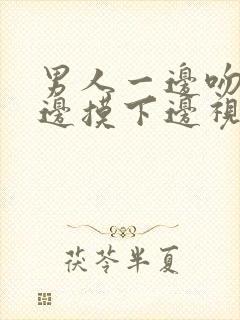 男人一邊吻
邊摸下邊視
茯苓半夏